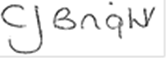 CJ Bright